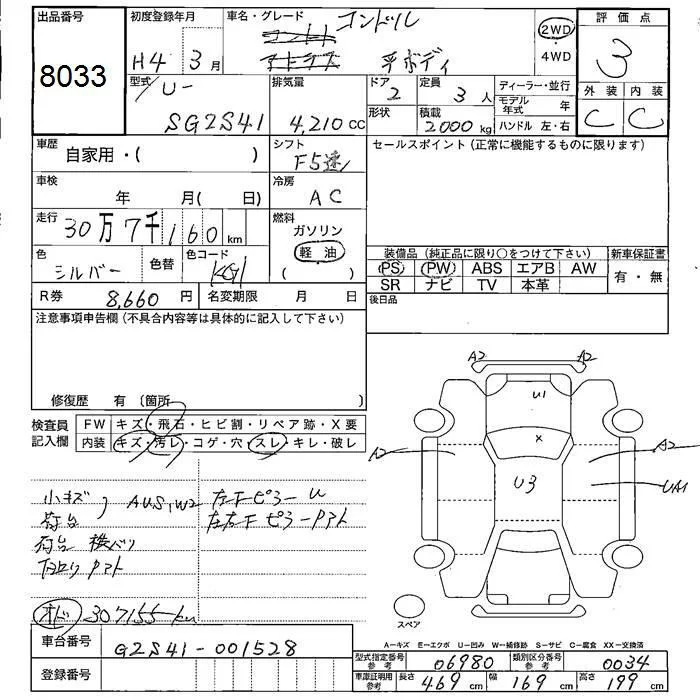 出品番号
8033
初度登録年月
H4 3月
車名・グレード
コンドル
平ボディ
2WD
4WD
評価点
3
外装 内装
C C
型式
U-
SG2S41
排気量
4,210 CC
ドア
2
形状
定員
3人
積載
2000 kg
ディーラー・並行
モデル年式 年
ハンドル 左・右
車歴
自家用・( )
シフト
F5速
セールスポイント(正常に機能するものに限ります)
車検
年 月(日)
冷房
AC
走行
30万7千160km
燃料
ガソリン
軽油
( )
色
シルバー
色替
色コード
KG1
装備品(純正品に限り○をつけて下さい)
PS PW ABS エアB AW
SR ナビ TV 本革
新車保証書
有・無
R券
8,660円
名変期限 月 日
後日品
注意事項申告欄(不具合内容等は具体的に記入して下さい)
修復歴 有(箇所 )
検査員記入欄
FW キズ・飛石・ヒビ割・リペア跡・X要
内装 キズ・汚レ・コゲ・穴・スレ・キレ・破レ
小キズ
荷台
AUS,W2
左右Fピラーpアト
オド 307155km
A2 A2
U1
x
A2
A2
U3
UA1
スペア
A-キズ E-エクボ U-凹み W-補修跡 S-サビ C-腐食 XX-交換済
車台番号
G2S41-001528
登録番号
型式指定番号 参考
06980
類別区分番号 参考
0034
車庫証明用 参考
長さ 469 cm
幅 169 cm
高さ 199 cm